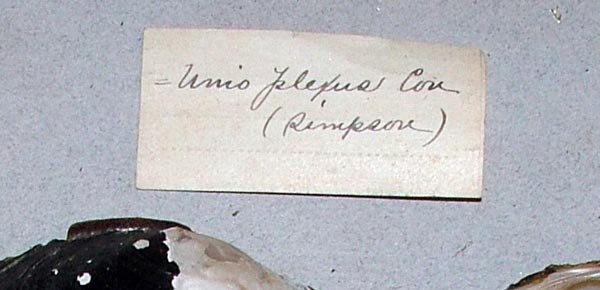 = Unio plexus Con
(Simpson)